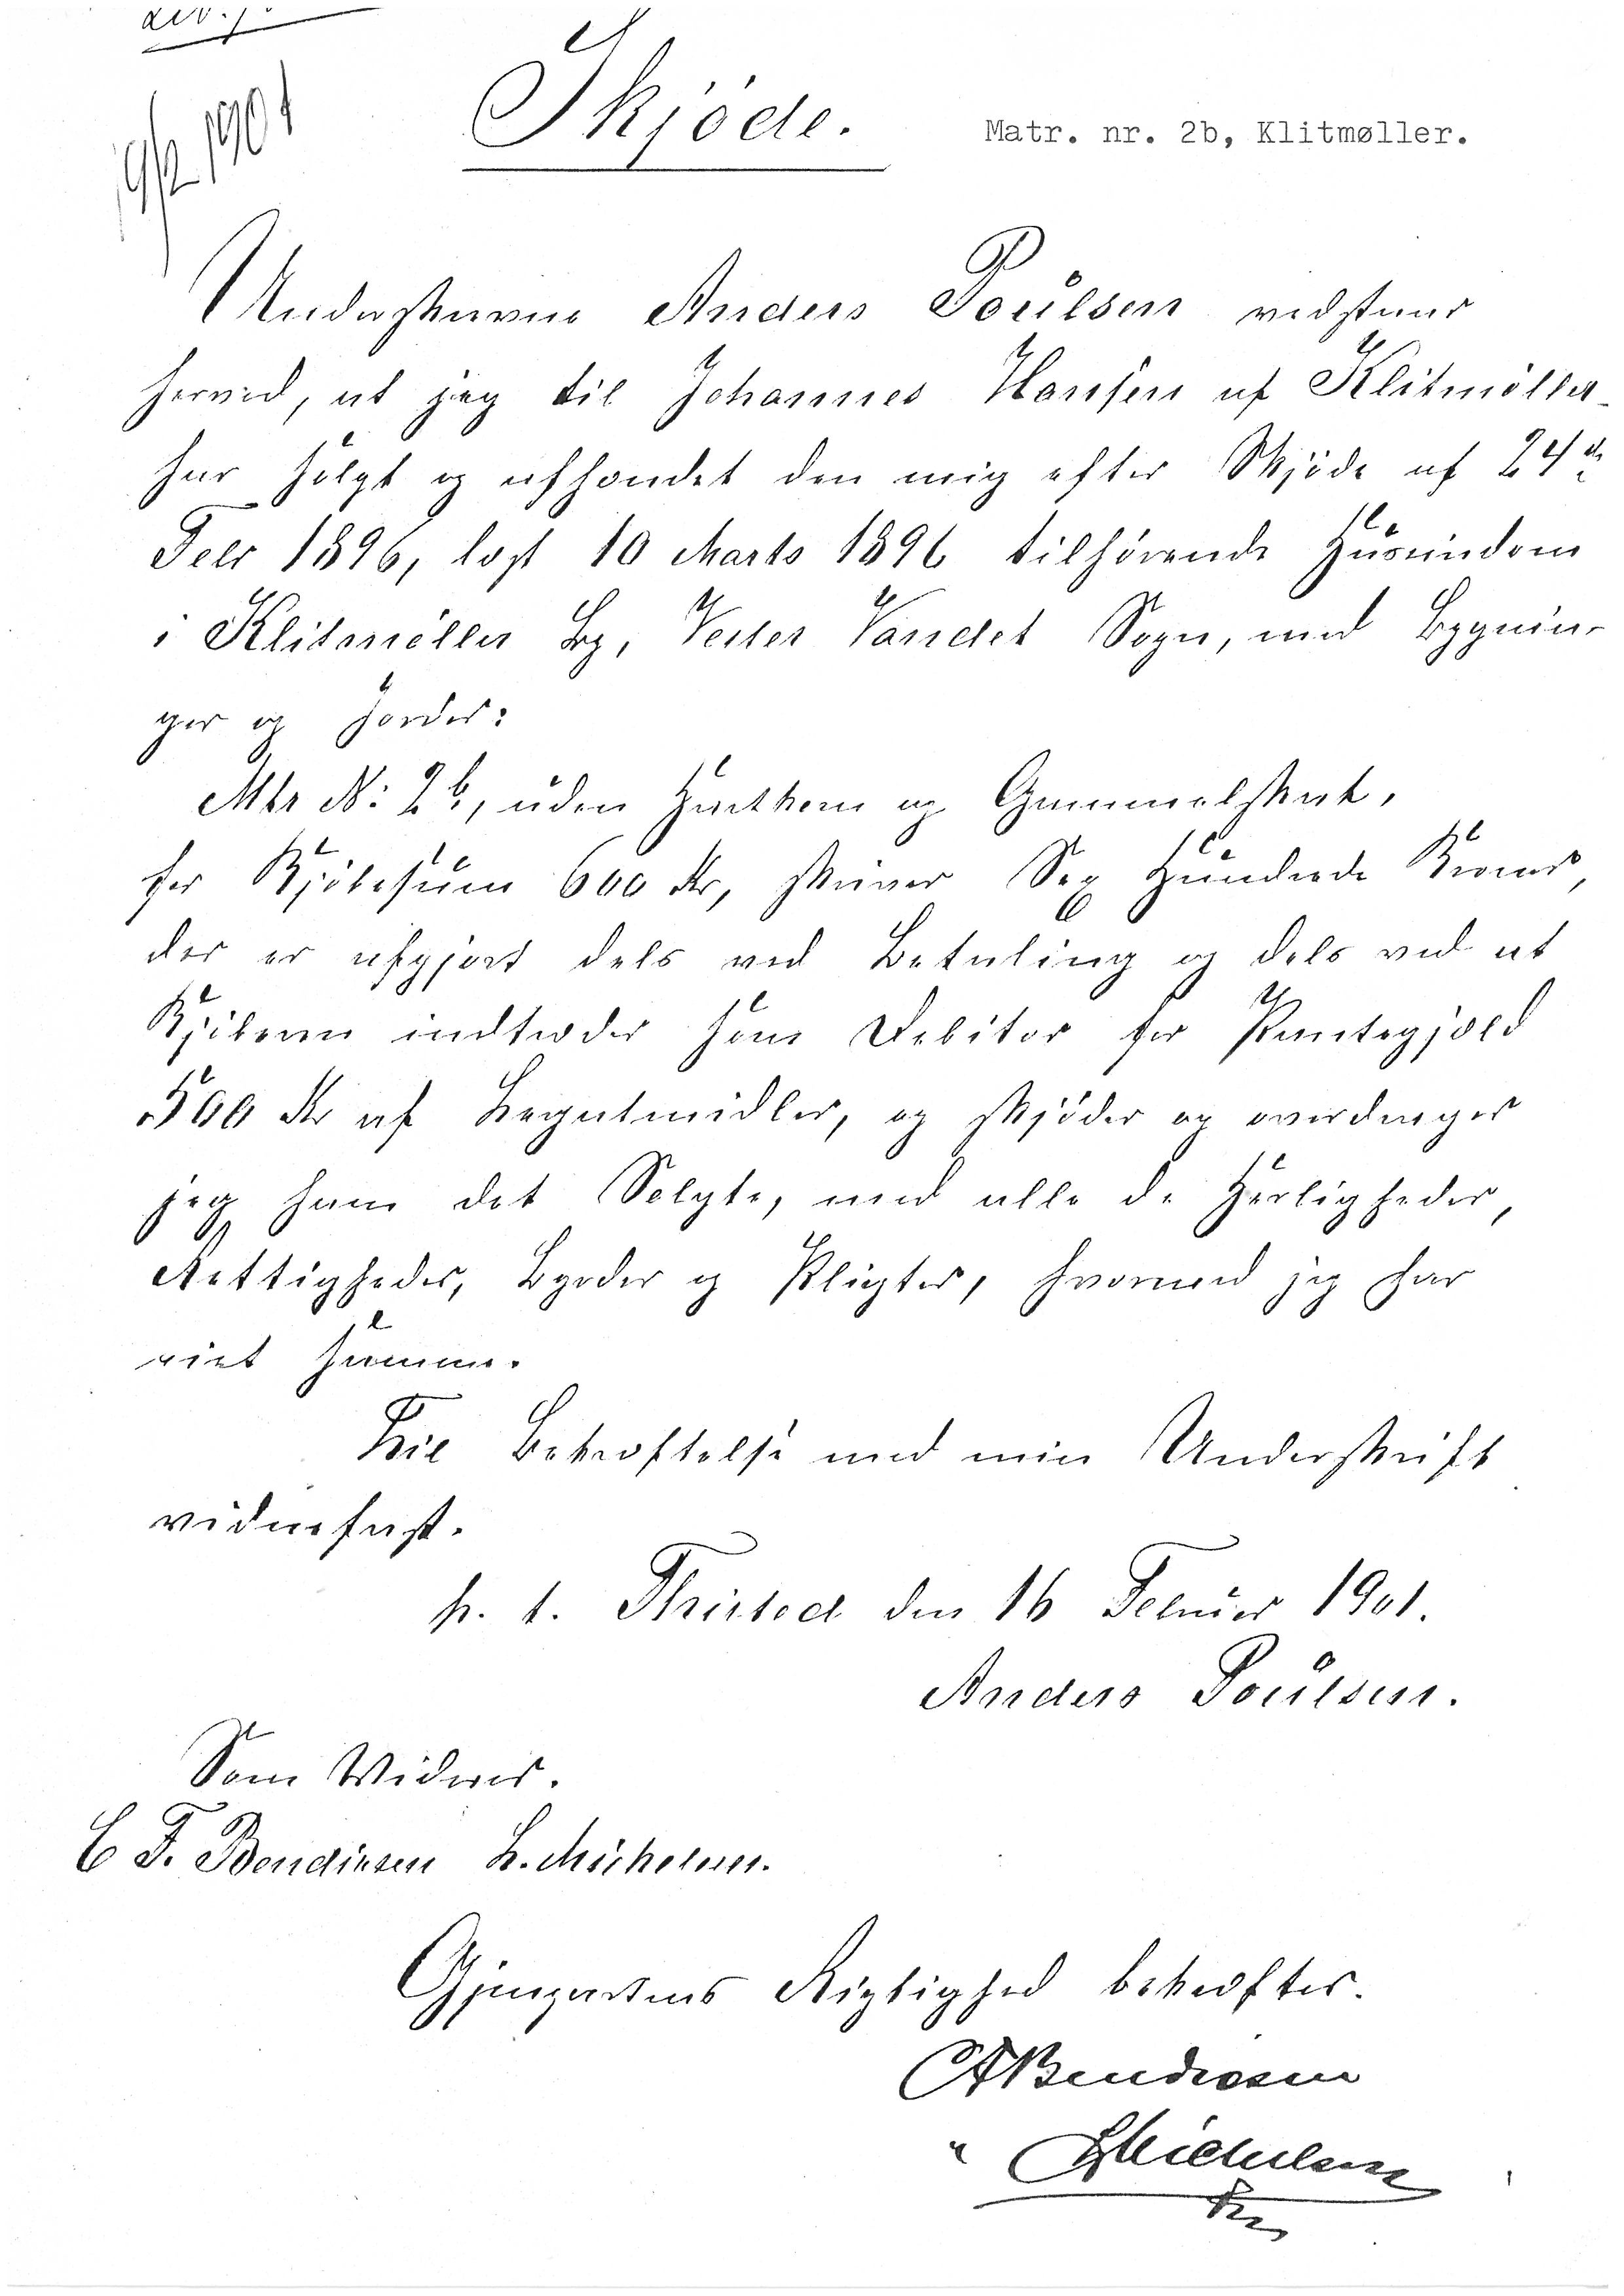 Skjøde.
Matr. nr. 2b, Klitmøller.
1901
Underskrevne Anders Poulsen vedstaar
herved, at jeg til Johannes Hansen af Klitmøller
har solgt og afhændet den mig efter Skjøde af 24de
Febr 1896, læst 10 Marts 1896 tilhørende Huseiendom
i Klitmøller By, Vester Vandet Sogn, med Bygnin-
ger og Jorder:
Mtr No: 2b, uden Hartkorn og Gammelskat,
for Kjøbesum 600 Kr, skriver Sex Hundrede Kroner,
der er afgjort dels ved Betaling og dels ved at
Kjøberen indtræder som Debitor for Pantegjæld
500 Kr af Legatmidler, og skjøder og overdrager
jeg ham det Solgte, med alle de Herligheder,
Rettigheder, Byrder og Pligter, hvormed jeg har
eiet samme.
Til Bekræftelse med min Underskrift
vidnefast.
p. t. Thisted den 16 Februar 1901.
Anders Poulsen.
Som Vidner.
C F. Bendixsen L. Michelsen.
Gjenpartens Rigtighed bekræftes.
CF Bendixsen
L Michelsen